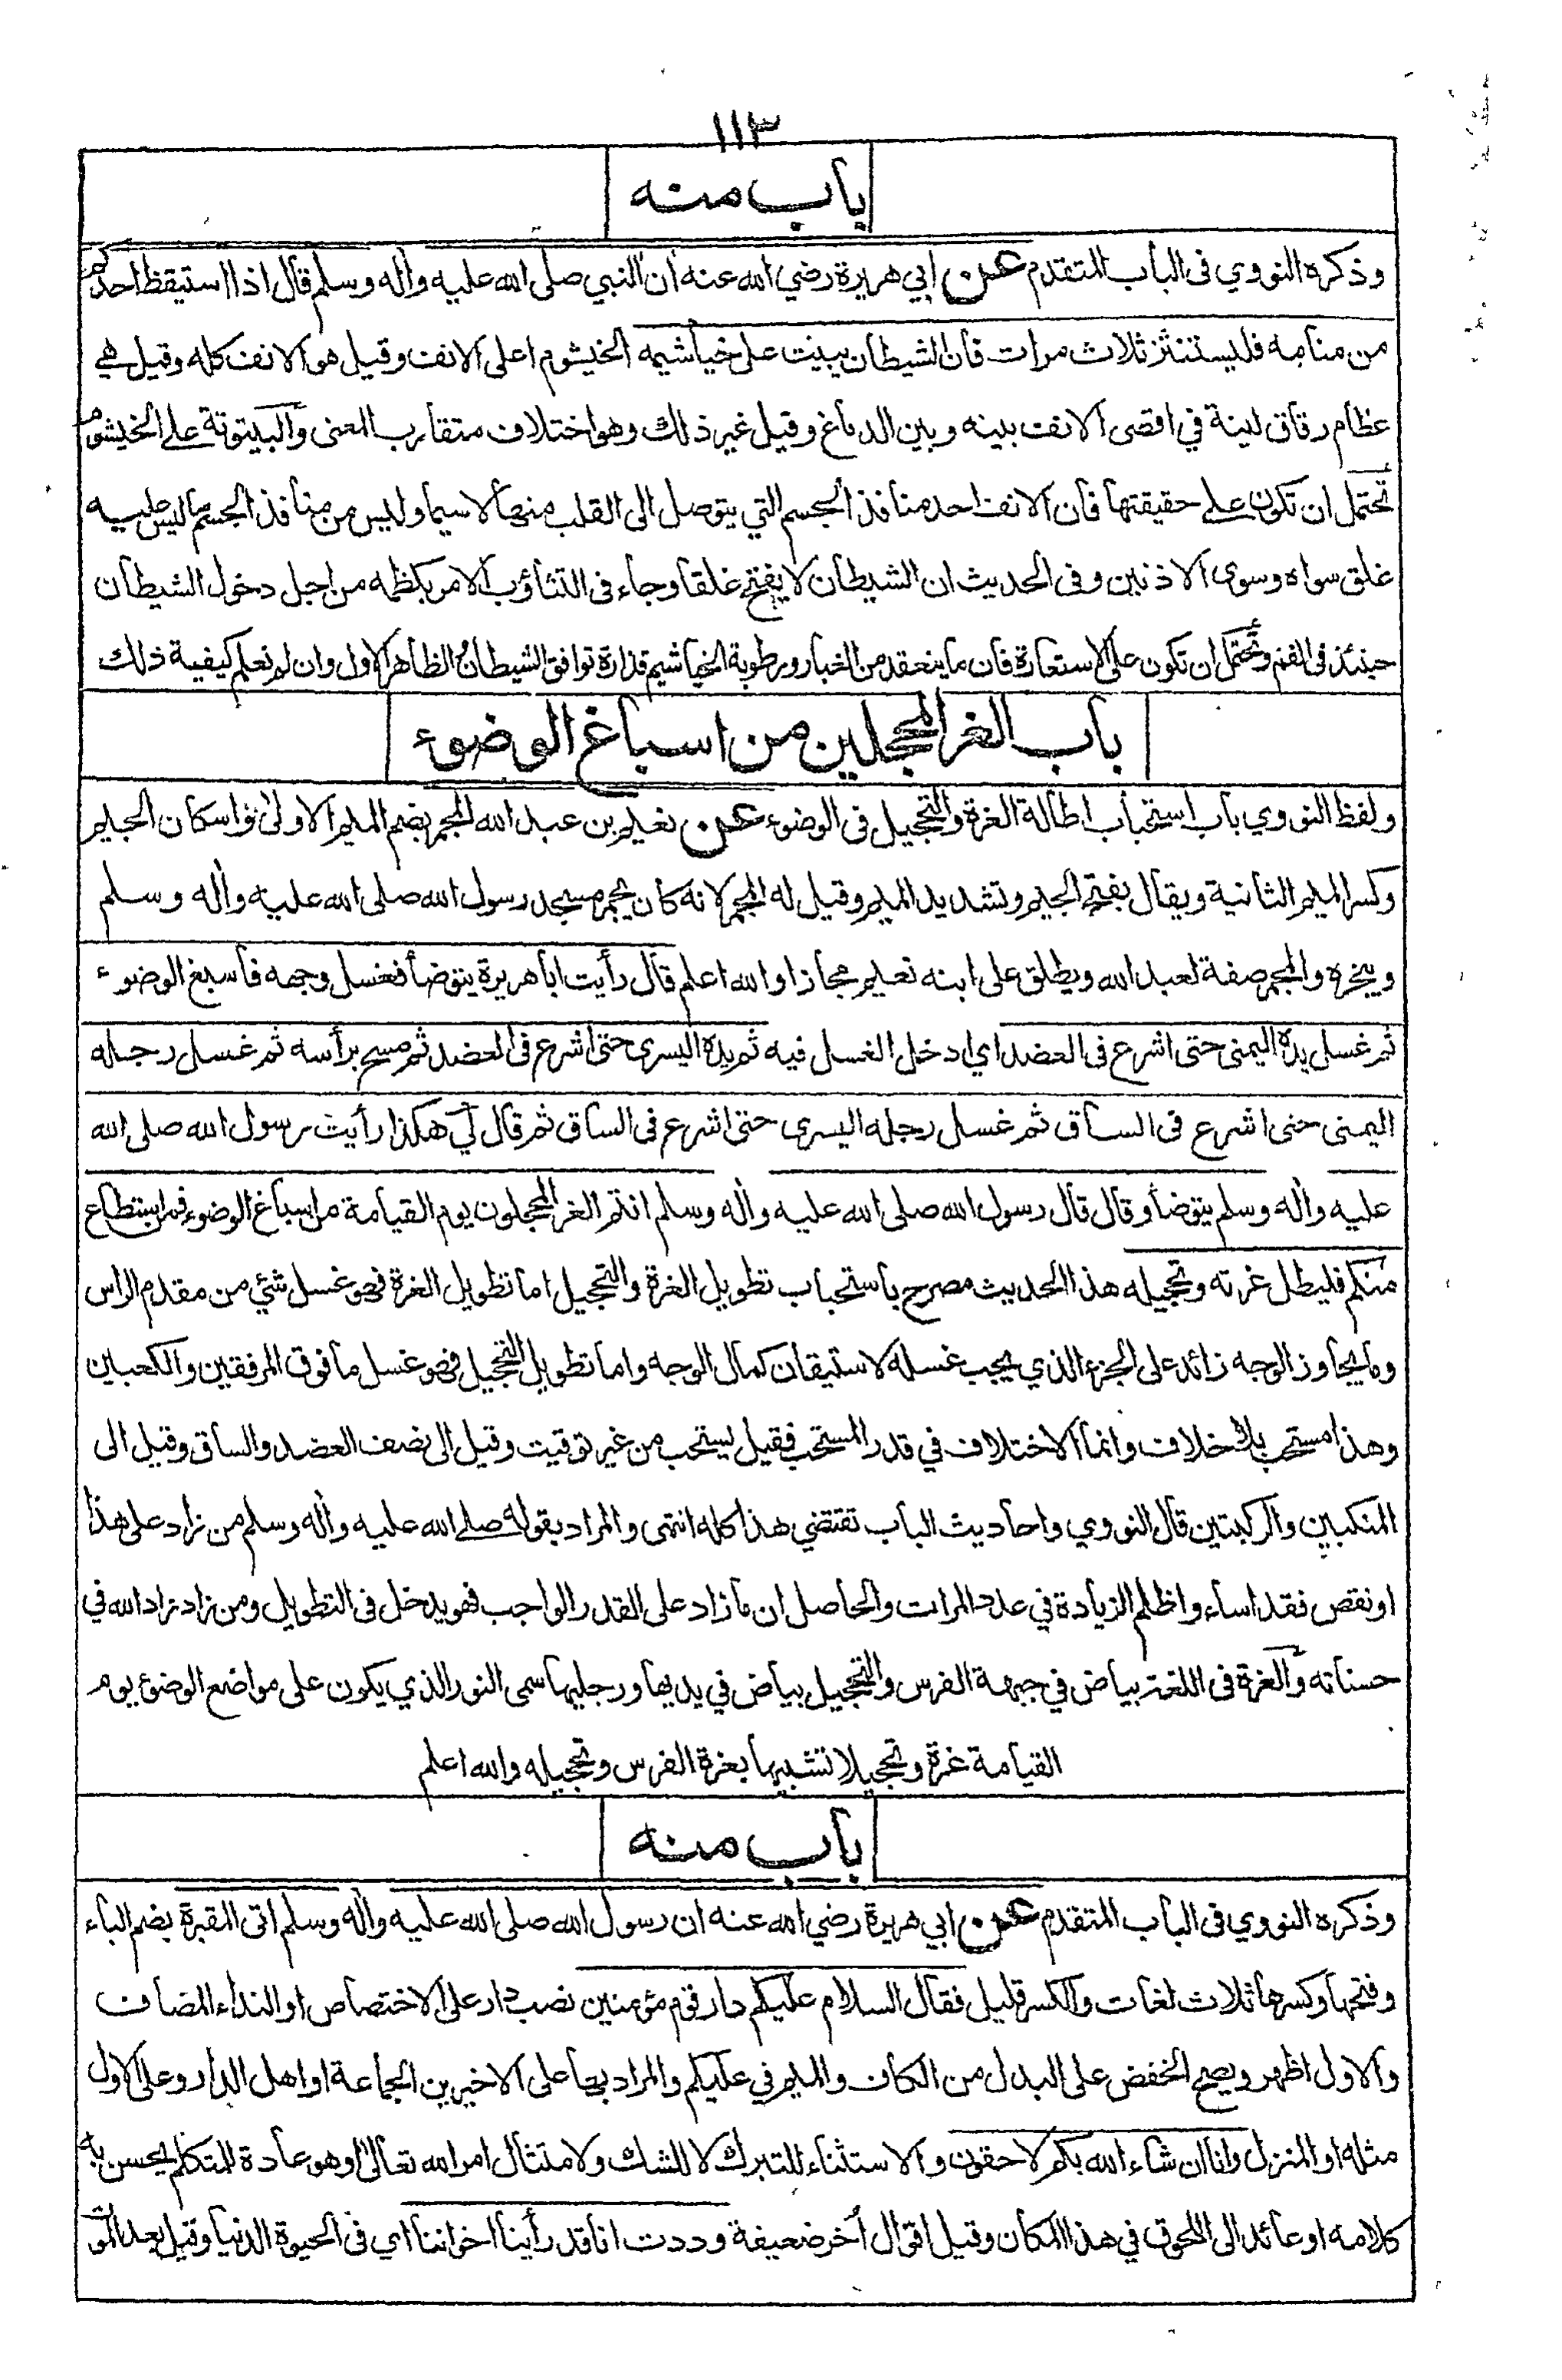 ١١٣
باب منه
وذكره النووي فى الباب المتقدم عن ابي هريرة رضي الله عنه أن النبي صلى الله عليه واٰله وسلم قال اذا استيقظ احدكم
من منامه فليستنثر ثلاث مرات فان الشيطان يبيت على خياشيمه الخيشوم اعلى الانف وقيل هو الانف كله وقيل هي
عظام رقاق لينة في اقصى الانف بينه وبين الدماغ وقيل غير ذلك وهو اختلاف متقارب المعنى والبيتوتة على الخيشوم
تحتمل ان تكون على حقيقتها فان الانف احد منافذ الجسم التي يتوصل الى القلب منها لاسيما وليس من منافذ الجسم ما ليس عليه
غلق سواه وسوى الاذنين وفى الحديث ان الشيطان لا يفتح غلقا وجاء فى التثاؤب الامر بكظمه من اجل دخول الشيطان
حينئذ فى الفم وتحتمل ان تكون على الاستعارة فان ما ينعقد من الغبار ورطوبة الخياشيم قذارة توافق الشيطان والظاهر الاول وان لم نعلم كيفية ذلك
باب الغر المحجلين من اسباغ الوضوء
ولفظ النووي باب استحباب اطالة الغرة والتحجيل فى الوضوء عن نعيم بن عبد الله المجمر بضم الميم الاولى واسكان الجيم
وكسر الميم الثانية ويقال بفتح الجيم وتشديد الميم وقيل له المجمر لانه كان يجمر مسجد رسول الله صلى الله عليه واٰله وسلم
ويبخره والمجمر صفة لعبد الله ويطلق على ابنه نعيم مجازا والله اعلم قال رأيت ابا هريرة يتوضأ فغسل وجهه فأسبغ الوضوء
ثم غسل يده اليمنى حتى اشرع فى العضد اي ادخل الغسل فيه ثم يده اليسرى حتى اشرع فى العضد ثم مسح برأسه ثم غسل رجله
اليمنى حتى اشرع فى الساق ثم غسل رجله اليسرى حتى اشرع فى الساق ثم قال لي هكذا رأيت رسول الله صلى الله
عليه واٰله وسلم يتوضأ وقال قال رسول الله صلى الله عليه واٰله وسلم انتم الغر المحجلون يوم القيامة من اسباغ الوضوء فمن استطاع
منكم فليطل غرته وتحجيله هذا الحديث مصرح باستحباب تطويل الغرة والتحجيل اما تطويل الغرة فهو غسل شئي من مقدم الراس
وما يجاوز الوجه زائد على الجزء الذي يجب غسله لاستيقان كمال الوجه واما تطويل التحجيل فهو غسل ما فوق المرفقين والكعبين
وهذا مستحب بلا خلاف وانما الاختلاف في قدر المستحب فقيل يستحب من غير توقيت وقيل الى نصف العضد والساق وقيل الى
المنكبين والركبتين قال النووي واحاديث الباب تقتضي هذا كله انتهى والمراد بقوله صلى الله عليه واٰله وسلم من زاد على هذا
او نقص فقد اساء واظلم الزيادة في عدد المرات والحاصل ان ما زاد على القدر الواجب فهو يدخل فى التطويل ومن زاد زاد الله في
حسناته والغرة فى اللغة بياض في جبهة الفرس والتحجيل بياض في يديها ورجليها سمى النور الذي يكون على مواضع الوضوء يوم
القيامة غرة وتحجيلا تشبيها بغرة الفرس وتحجيله والله اعلم
باب منه
وذكره النووي فى الباب المتقدم عن ابي هريرة رضي الله عنه ان رسول الله صلى الله عليه واٰله وسلم اتى المقبرة بضم الباء
وفتحها وكسرها ثلاث لغات والكسر قليل فقال السلام عليكم دار قوم مؤمنين نصب دار على الاختصاص او النداء المضاف
والاول اظهر ويصح الخفض على البدل من الكاف والميم في عليكم والمراد بها على الاخيرين الجماعة او اهل الدار وعلى الاول
مثله او المنزل وانا ان شاء الله بكم لاحقون والاستثناء للتبرك لا للشك ولامتثال امر الله تعالى او هو عادة للمتكلم يحسن به
كلامه او عائد الى اللحوق في هذا المكان وقيل اقوال أخر ضعيفة وددت انا قد رأينا اخواننا اي فى الحيوة الدنيا وقيل بعد الموت